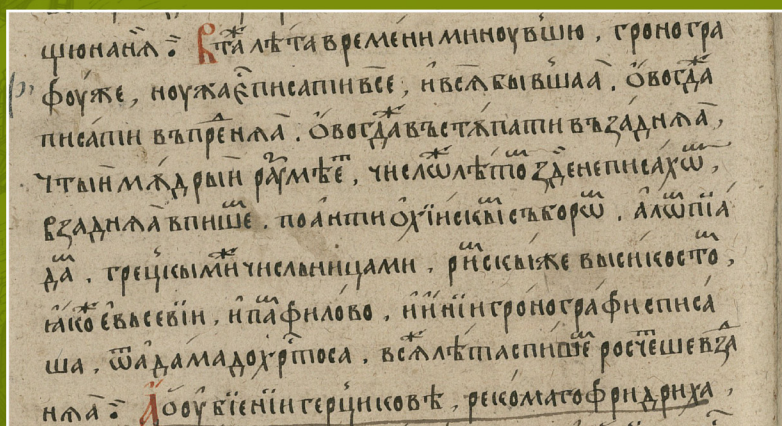 щюнанѧ҃ : Вта҃ лѣ́та времени миноувшю , гроногра
фоу́же , ноужаéписатіи все , и҆всѧбы́вшаа҆ . о҆вогда
писатіи въпреднѧа҆ . о҆вогдаⷤ въстѫпати въза́днѧа҆ ,
чтыи мѫ́дрыи разоумѣеⷮ , числѡⷨ лѣтоⷨ здеⷤ неписахѡⷨ ,
взаднѧа҆ впишеⷨ . поа҆нтио҆хі́искыⷨ съборѡⷨ . а҆лѡⷨпїа
даⷨ . грецкымиⷤ числьницами . риⷨскыⷤже высикостоⷨ ,
ꙗ҆коⷤ е҆́вьсевїи , и҆паⷨфилово , и҆и҆нїи гронографи списа
ша , ѿа҆дама дохрⷭ҇тоса , всѧⷤ лѣта спишеⷨ росчеⷮше взаⷣ
нѧа҆ : По оу҆бїе́нїи герциковѣ , рекомаго фридриха ,